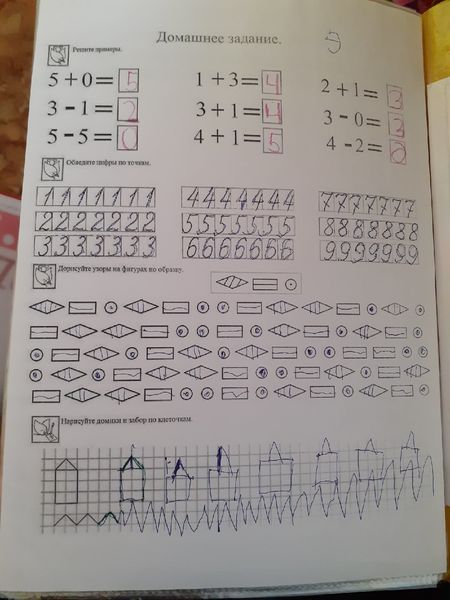 Домашнее задание.
Решите примеры.
5+0=5 1+3=4 2+1=3
3-1=2 3+1=4 3-0=3
5-5=0 4+1=5 4-2=
Обведите цифры по точкам.
1111111 4444444 7777777
2222222 5555555 8888888
3333333 6666666 9999999
Дорисуйте узоры на фигурах по образцу.
Нарисуйте домики и забор по клеточкам.